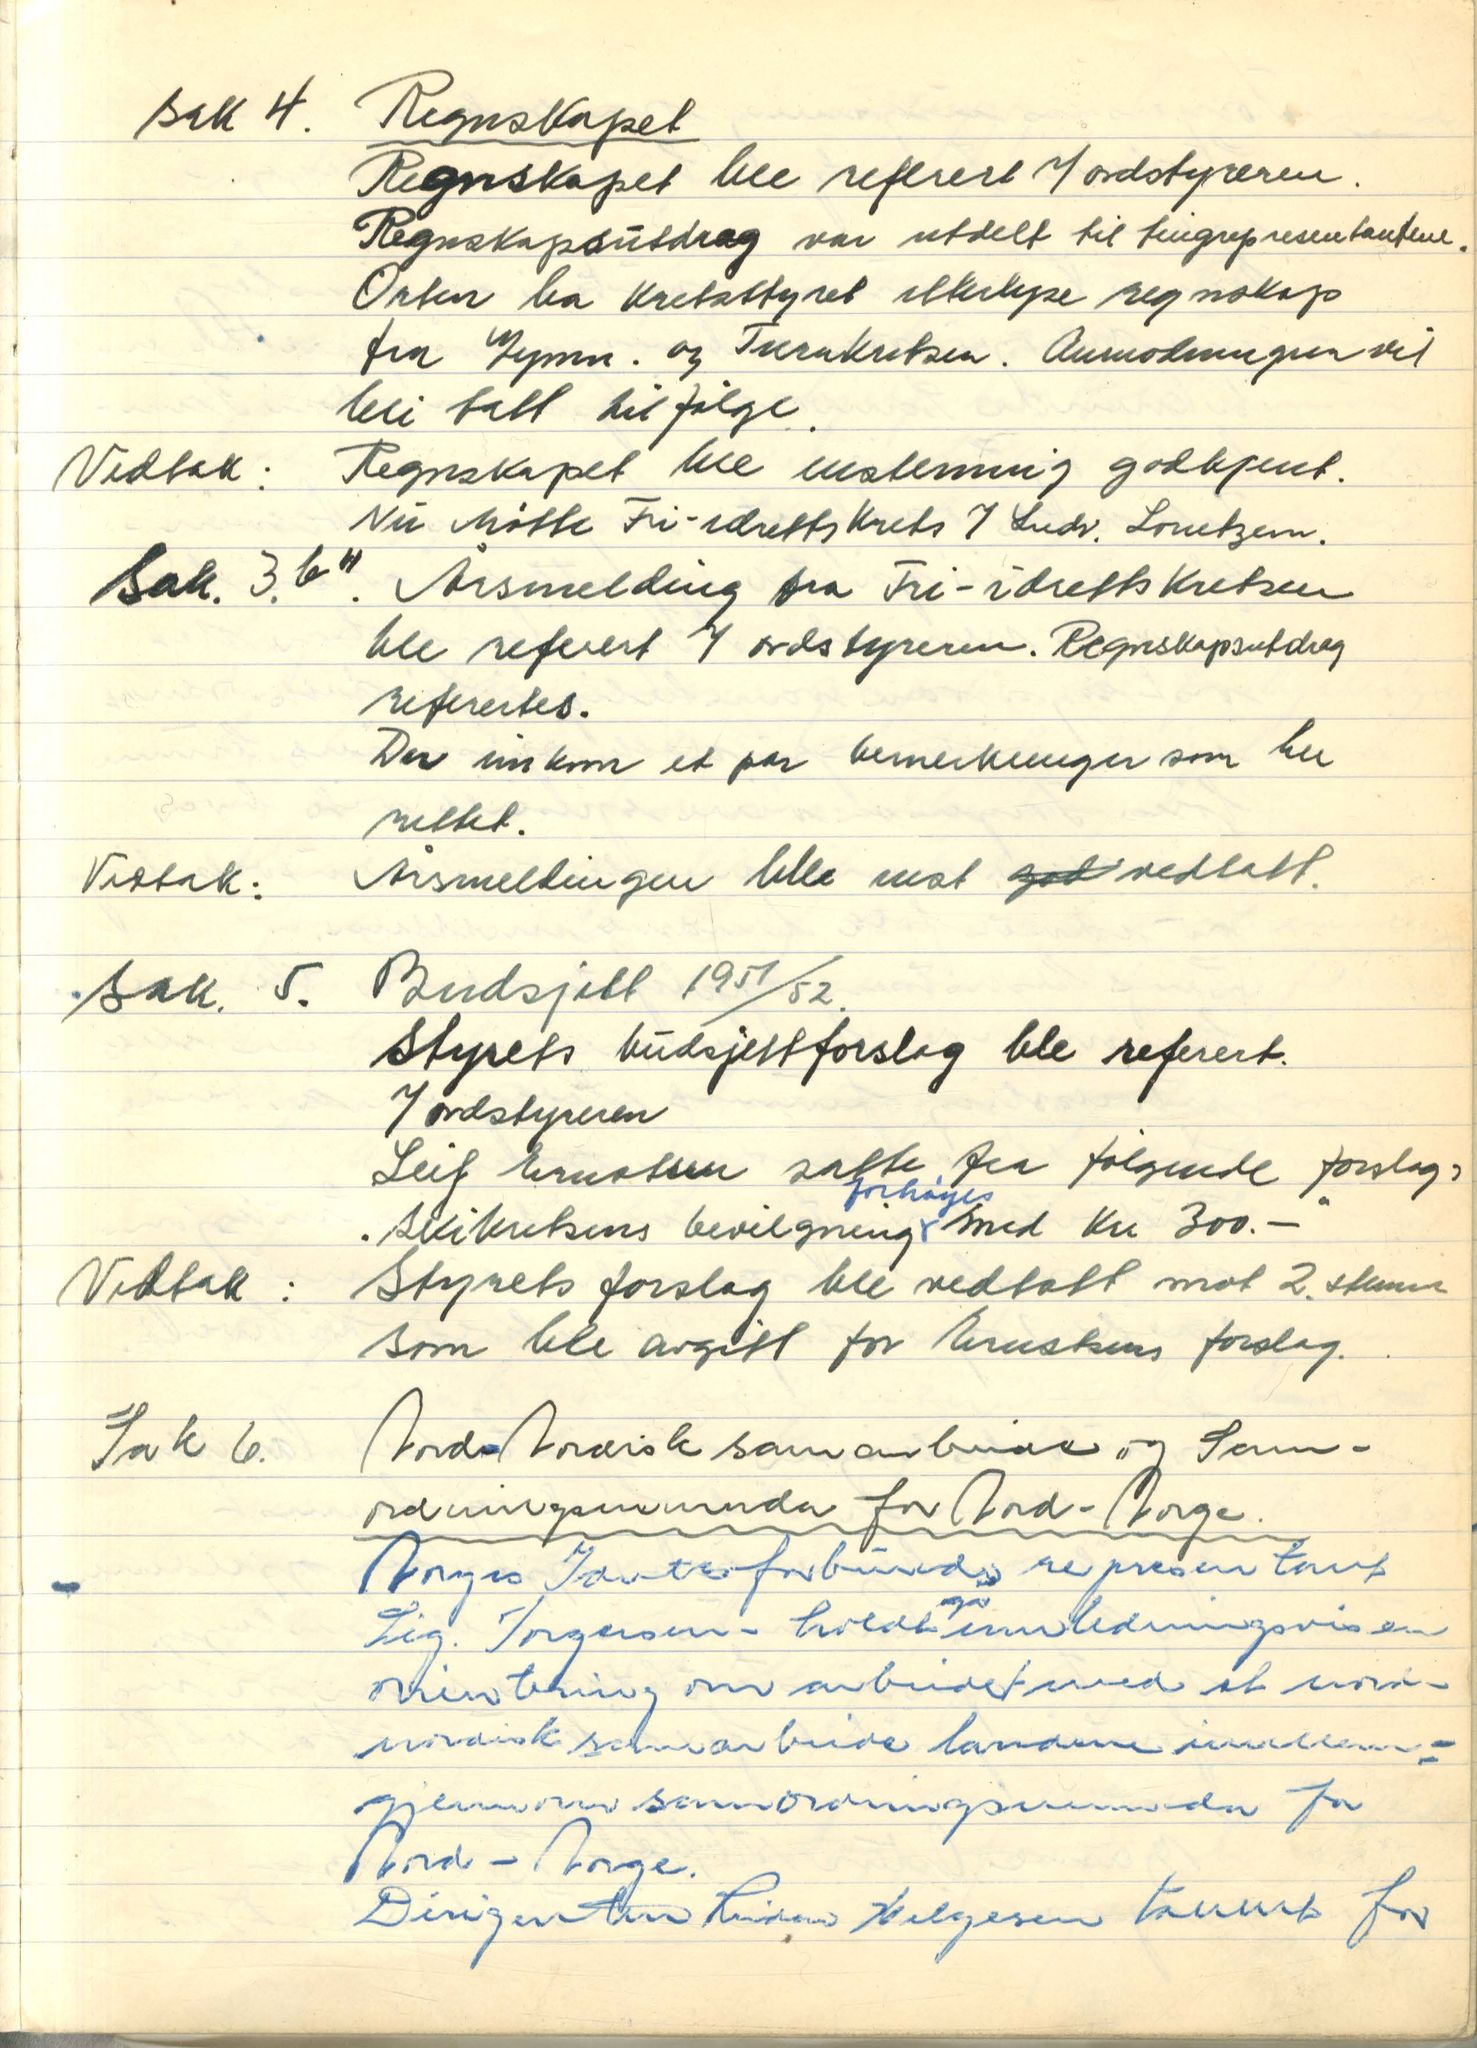 Sak 4. Regnskapet
Regnskapet ble referert v/ ordstyreren.
Regnskapsutdrag var utdelt til tingrepresentantene.
ba Kretsstyret regnskap
fra Gymn. og Turnkretsen. Anmodningen vil
bli tatt til følge.
Vedtak: Regnskapet ble enstemmig godkjent.
Nu møtte Fri-idrettskrets v/ Ludv. Lorentzen.
Sak. 3.b". Årsmelding fra Fri-idrettskretsen
ble referert v/ ordstyreren. Regnskapsutdrag
refertes.
Der innkom et par bemerkninger som ble
rettet.
Vedtak: Årsmeldingen ble enst god vedtatt.
Sak. 5. Budsjett 1951/52.
Styrets budsjettforslag ble referert.
v/ ordstyreren
Leif satte fra følgende forslag,
forhøyes
"Skikretsens bevilgning med kr 300.-"
Vedtak: Styrets forslag ble vedtatt mot 2. stemmer
som ble avgitt for forslag.
Sak 6. Nord-Nordisk samarbeide og Sam-
ordningsnemnda for Nord-Norge.
Norges Idrettsforbunds representant
Sig. Torgersen- holdt innledningsvis en
orientering om arbeidet med et nord-
nordisk samarbeide landene imellem-
gjennom samordningsnemnda for
Nord-Norge.
Dirigenten Helgesen takket for